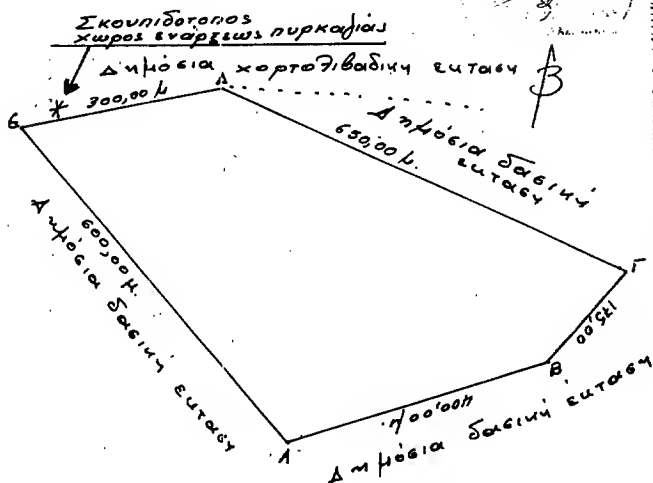 Σκουπιδότοπος
χώρος ενάρξεως πυρκαγιάς
Δημόσια χορτολιβαδική έκταση
300,00 μ
Δ
Β
Ε
Δημόσια δασική
έκταση
650,00 μ.
Γ
175,00
Β
600,00 μ.
Δημόσια δασική έκταση
400,00 μ.
Α
Δημόσια δασική έκταση